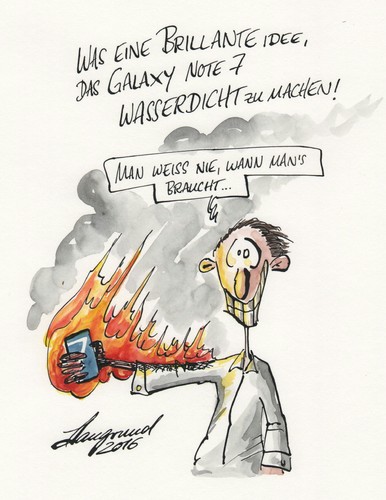 WAS EINE BRILLANTE IDEE,
DAS GALAXY NOTE 7
WASSERDICHT ZU MACHEN!
MAN WEISS NIE, WANN MAN'S
BRAUCHT...
7
2016